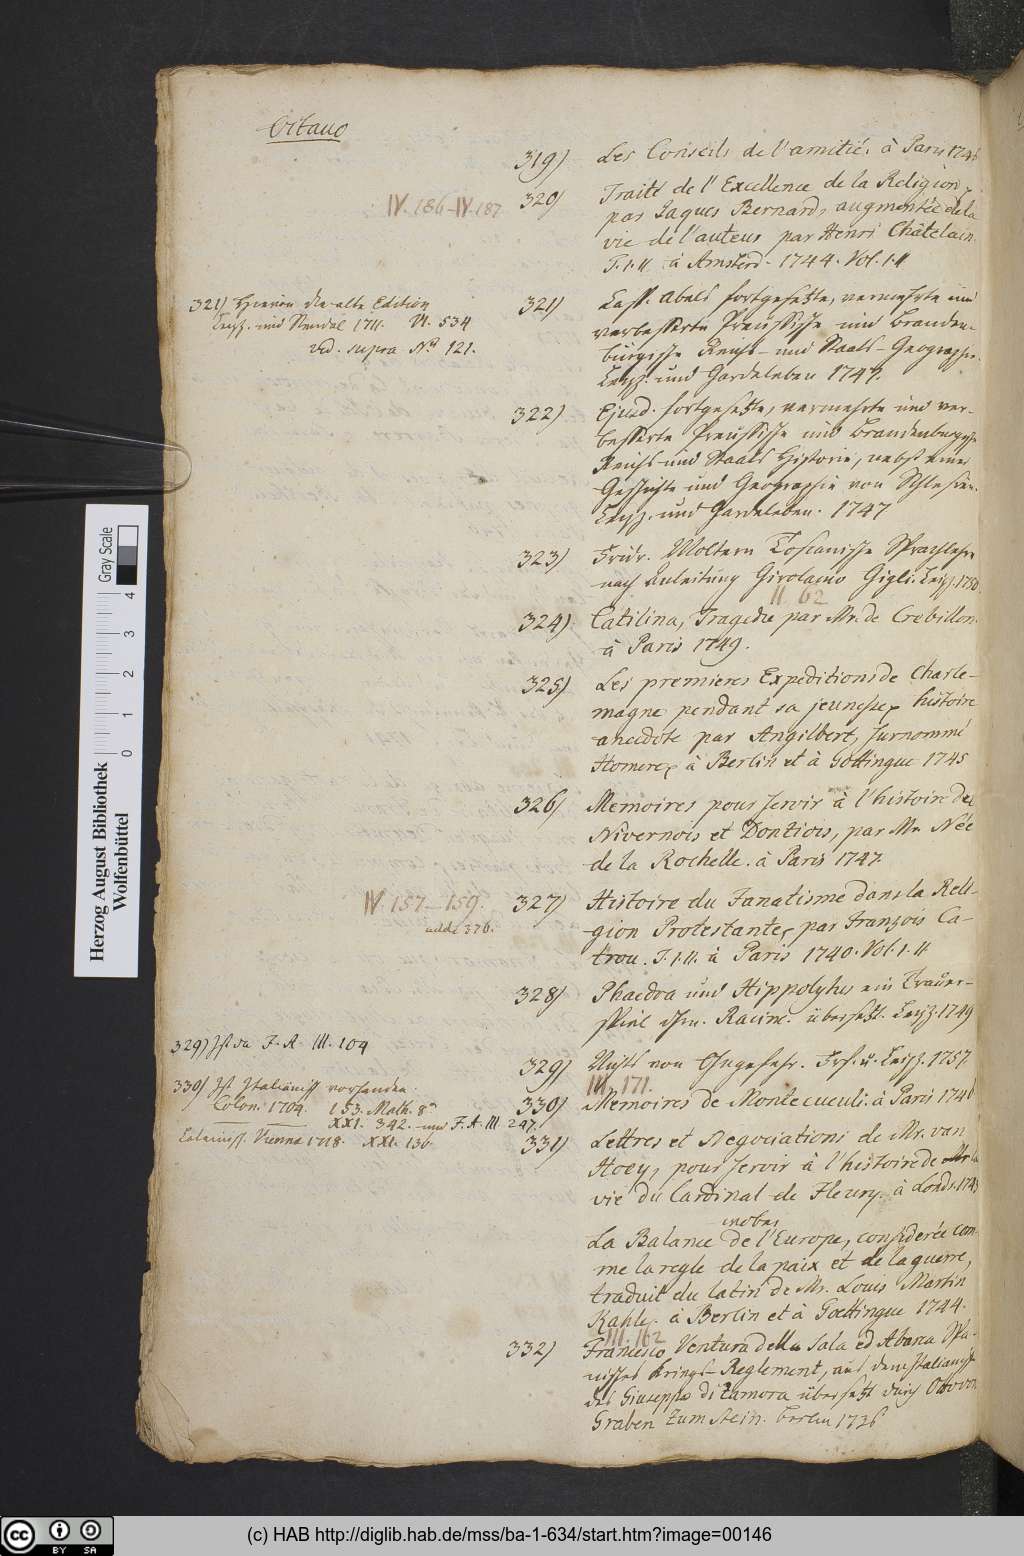 Octavo
319) Les Conseils de l'amitié. à Paris 1746
320) Traité de l'Excellence de la Religion,
IV. 186-IV. 187
par Jaques Bernard, augmentée de la
vie de l'auteur par Henri Châtelain.
T. I. II. à Amsterd. 1744. Vol. I. II
321) Hievon die alte Edition
Leipz. und Stendal 1711. VI. 534
vid. supra No 121.
321) Casp. Abels fortgesetzte, vermehrte und
verbesserte Preussische und Branden-
burgische Reichs- und Staats-Geographie.
Leipz. und Gardeleben 1747.
322) Ejusd. fortgesetzte, vermehrte und ver-
besserte Preussische und Brandenburgische
Reichs und Staats Historie, nebst einer
Geschichte und Geographie von Schlesien.
Leipz. und Gardeleben. 1747
323) Fridr. Moltern Toscanische Sprachlehre
nach Anleitung Girolamo Gigli. Leipz. 1750.
II. 62
324) Catilina, Tragedie par Mr. de Crebillon.
à Paris 1749.
325) Les premieres Expeditions de Charle-
magne pendant sa jeunesse, histoire
anecdote par Angilbert, surnommé
Homere, à Berlin et à Gottingue 1745
326) Memoires pour servir à l'histoire de
Nivernois et Dontiois, par Mr. Née
de la Rochelle. à Paris 1747.
IV. 157-159.
adde 376.
327) Histoire du Fanatisme dans la Reli-
gion Protestante, par François Ca-
trou. T. I. II. à Paris 1740. Vol. I. II
328) Phaedra und Hippolytus ein Trauer-
spiel Hrn. Racine. übersetzt. Leipz. 1749
329) Ist da F. A. III. 104
329) Nichts von Ohngefehr. Frf. u. Leipz. 1757.
III. 171.
330) Ist Italiänisch vorhanden.
Colon. 1704. 153. Math. 8o
XXI. 342. und F. A. III. 247.
Lateinisch. Vienna 1718. XXI. 136.
330) Memoires de Montecuculi. à Paris 1746
331) Lettres et Negociations de Mr. van
Hoey, pour servir à l'histoire de Mr la
vie du Cardinal de Fleury. à Londr. 1743
La Balance de l'Europe, considerée com-
me la regle de la paix et de la guerre,
traduit du latin de Mr. Louis Martin
Kahle. à Berlin et à Goettingue 1744.
III. 162
332) Francesco Ventura della Sala ed Abarca Spa-
nisches Kriegs-Reglement, aus dem Italiänisch
des Giuseppe di Zamora übersetzt durch Otto von
Graben zum Stein. Berlin 1736
Herzog August Bibliothek
Wolfenbüttel
0 1 2 3 4
Gray Scale
cc BY SA
(c) HAB http://diglib.hab.de/mss/ba-1-634/start.htm?image=00146